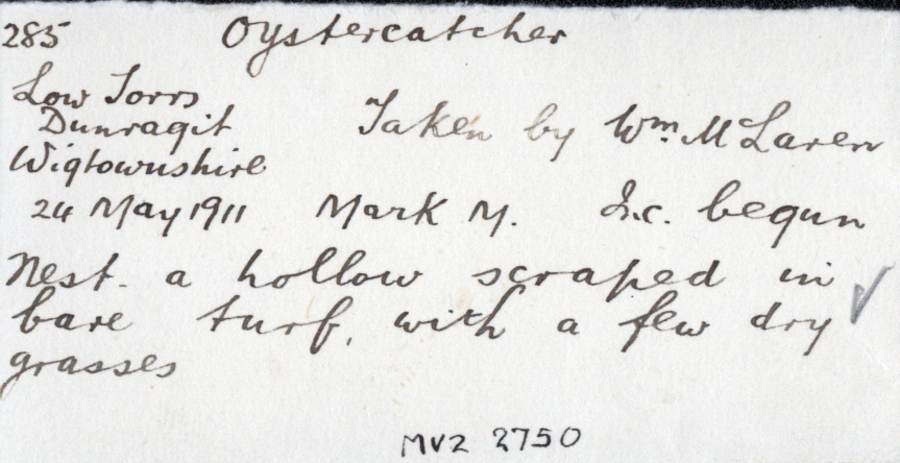 285 Oystercatcher
Low Torrs
Dunragit Taken by Wm. McLaren
Wigtownshire
24 May 1911 Mark M. Inc. begun
Nest. a hollow scraped in
bare turf, with a few dry
grasses
MVZ 2750